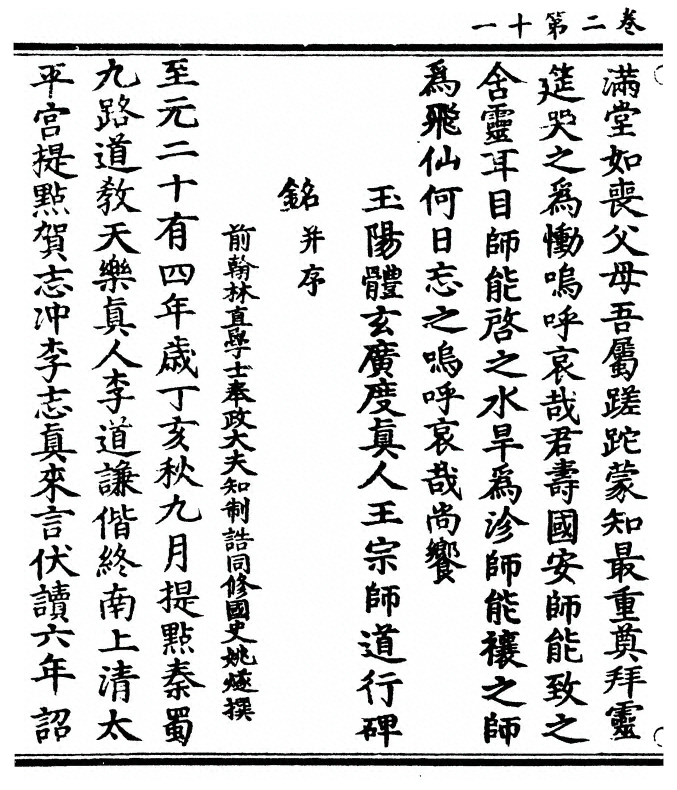 卷二第十一
滿堂如喪父母吾屬蹉跎蒙知最重奠拜靈
筵哭之爲慟嗚呼哀哉君壽國安師能致之
含靈耳目師能啓之水旱爲沴師能禳之師
爲飛仙何日忘之嗚呼哀哉尚饗
玉陽體玄廣度眞人王宗師道行碑
銘并序
前翰林直學士奉政大夫知制誥同修國史姚燧撰
至元二十有四年歲丁亥秋九月提點秦蜀
九路道教天樂眞人李道謙偕終南上清太
平宫提點賀志冲李志眞來言伏讀六年詔